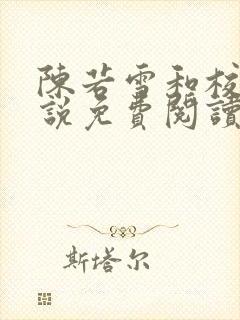 陳若雪和校
說免費閱讀
斯塔尔